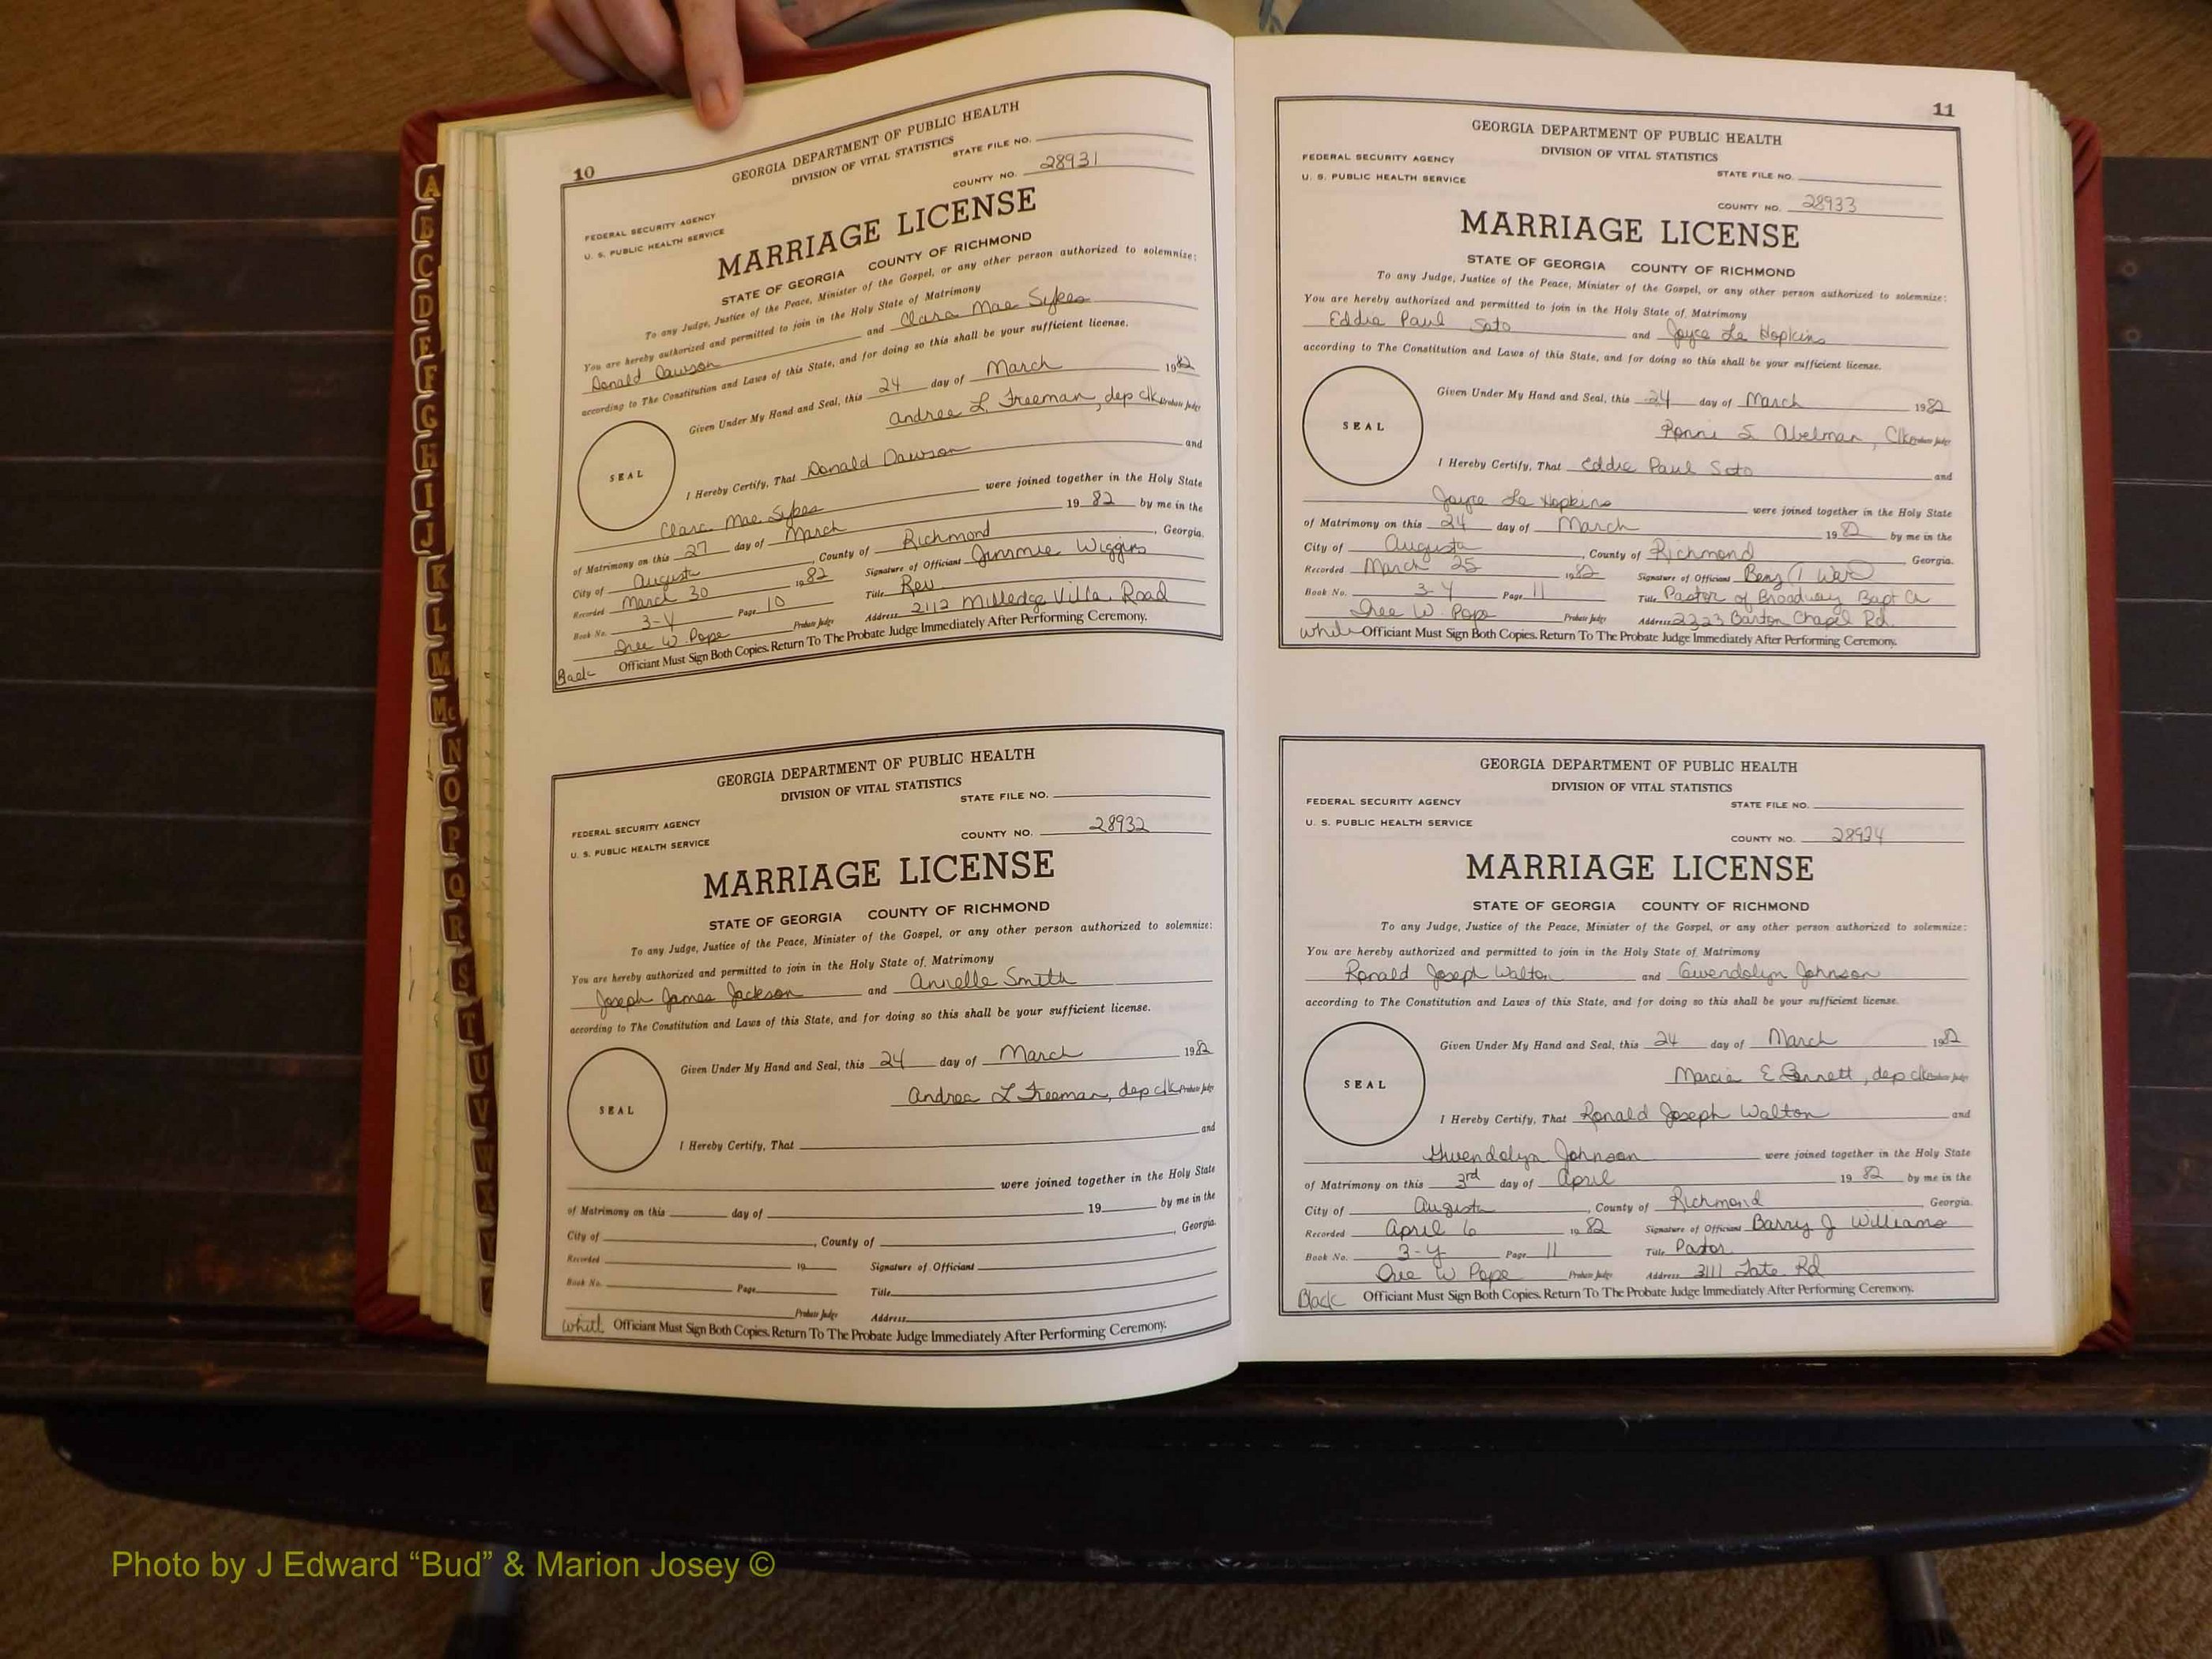 10
GEORGIA DEPARTMENT OF PUBLIC HEALTH
DIVISION OF VITAL STATISTICS
STATE FILE NO.
COUNTY NO. 28931
FEDERAL SECURITY AGENCY
U. S. PUBLIC HEALTH SERVICE
MARRIAGE LICENSE
STATE OF GEORGIA COUNTY OF RICHMOND
To any Judge, Justice of the Peace, Minister of the Gospel, or any other person authorized to solemnize:
You are hereby authorized and permitted to join in the Holy State of Matrimony
Donald Dawson and Clara Mae Sykes
according to The Constitution and Laws of this State, and for doing so this shall be your sufficient license.
Given Under My Hand and Seal, this 24 day of March 1982
Andrea L. Freeman, dep clk Probate Judge
SEAL
I Hereby Certify, That Donald Dawson and
Clara Mae Sykes were joined together in the Holy State
of Matrimony on this 27 day of March 1982 by me in the
City of Augusta, County of Richmond, Georgia.
Recorded March 30 1982 Signature of Officiant Jimmie Wiggins
Book No. 3-Y Page 10 Title Rev
W. Pope Probate Judge Address 2112 Milledge Villa Road
Officiant Must Sign Both Copies. Return To The Probate Judge Immediately After Performing Ceremony.
GEORGIA DEPARTMENT OF PUBLIC HEALTH
DIVISION OF VITAL STATISTICS
STATE FILE NO.
FEDERAL SECURITY AGENCY
U. S. PUBLIC HEALTH SERVICE
COUNTY NO. 28932
MARRIAGE LICENSE
STATE OF GEORGIA COUNTY OF RICHMOND
To any Judge, Justice of the Peace, Minister of the Gospel, or any other person authorized to solemnize:
You are hereby authorized and permitted to join in the Holy State of Matrimony
Joseph James Jackson and Annelle Smith
according to The Constitution and Laws of this State, and for doing so this shall be your sufficient license.
Given Under My Hand and Seal, this 24 day of March 1982
Andrea L Freeman, dep clk Probate Judge
SEAL
I Hereby Certify, That and
were joined together in the Holy State
of Matrimony on this day of 19 by me in the
City of , County of , Georgia.
Recorded 19 Signature of Officiant
Book No. Page Title
Probate Judge Address
White Officiant Must Sign Both Copies. Return To The Probate Judge Immediately After Performing Ceremony.
11
GEORGIA DEPARTMENT OF PUBLIC HEALTH
DIVISION OF VITAL STATISTICS
FEDERAL SECURITY AGENCY
U. S. PUBLIC HEALTH SERVICE
STATE FILE NO.
COUNTY NO. 28933
MARRIAGE LICENSE
STATE OF GEORGIA COUNTY OF RICHMOND
To any Judge, Justice of the Peace, Minister of the Gospel, or any other person authorized to solemnize:
You are hereby authorized and permitted to join in the Holy State of Matrimony
Eddie Paul Soto and Joyce Le Hopkins
according to The Constitution and Laws of this State, and for doing so this shall be your sufficient license.
Given Under My Hand and Seal, this 24 day of March 1982
S. Abelman, Clk Probate Judge
SEAL
I Hereby Certify, That Eddie Paul Soto and
Joyce Le Hopkins were joined together in the Holy State
of Matrimony on this 24 day of March 1982 by me in the
City of Augusta, County of Richmond, Georgia.
Recorded March 25 1982 Signature of Officiant
Book No. 3-Y Page 11 Title Pastor of Broadway Bapt Ch
W. Pope Probate Judge Address 2323 Barton Chapel Rd.
White Officiant Must Sign Both Copies. Return To The Probate Judge Immediately After Performing Ceremony.
GEORGIA DEPARTMENT OF PUBLIC HEALTH
DIVISION OF VITAL STATISTICS
FEDERAL SECURITY AGENCY
STATE FILE NO.
U. S. PUBLIC HEALTH SERVICE
COUNTY NO. 28934
MARRIAGE LICENSE
STATE OF GEORGIA COUNTY OF RICHMOND
To any Judge, Justice of the Peace, Minister of the Gospel, or any other person authorized to solemnize:
You are hereby authorized and permitted to join in the Holy State of Matrimony
Ronald Joseph Walton and Gwendolyn Johnson
according to The Constitution and Laws of this State, and for doing so this shall be your sufficient license.
Given Under My Hand and Seal, this 24 day of March 1982
Marcia E , dep clk Probate Judge
SEAL
I Hereby Certify, That Ronald Joseph Walton and
Gwendolyn Johnson were joined together in the Holy State
of Matrimony on this 3rd day of April 1982 by me in the
City of Augusta, County of Richmond Georgia.
Recorded April 6 1982 Signature of Officiant Barry J Williams
Book No. 3-Y Page 11 Title Pastor
W Pope Probate Judge Address 3111 Tate Rd
Black Officiant Must Sign Both Copies. Return To The Probate Judge Immediately After Performing Ceremony.
A
B
C
D
E
F
G
H
I
J
K
L
M
Mc
N
O
P
Q
R
S
T
U
V
W
X
Y
Z
Photo by J Edward “Bud” & Marion Josey ©